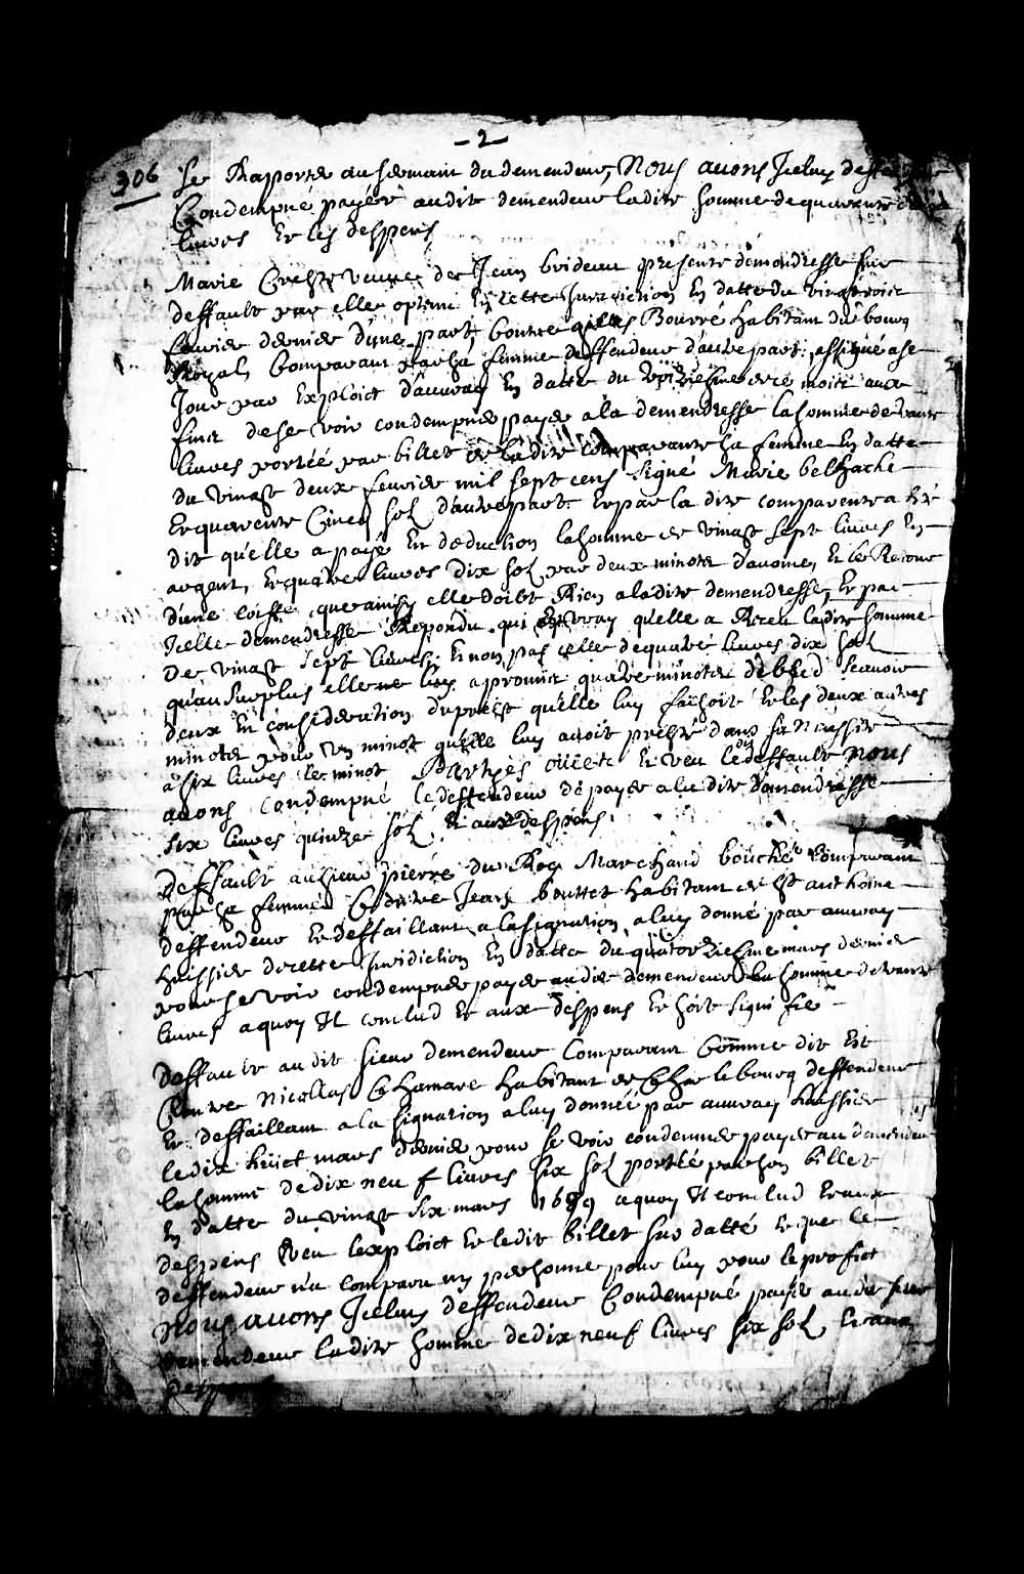 - 2 -
306 Se Rapporte au serment du demendeur, Nous avons Jceluy
Condempné payér audit demendeur ladite somme de quarente
livres Et les despens
Marie Creste veuve de Jean brideau presente demendresse sur
deffault par elle optenu En cette Jurisdiction En datte du vingt trois
feuvrier dernier d'une part, Contre gilles Bourré habitant du bourg
Royal, Comparant par sa femme deffendeur d'autre part, assigné a se
Jour par Exploict d'auvray En datte du de ce mois aux
fins de se voir condempner payer a la demendresse la somme de trante
livres portéé par billet de ladite Comparante sa femme En datte
du vingt deux feuvrier mil sept cens signé Marie belhache
Et quarente Cincq sol d'autre part. Et par la dite comparente a Eté
dit qu'elle a payé En deduction la somme de vingt sept livres En
argent, Et quatre livres dix sol par deux minots d'avoine, Et le Retour
d'une que ainsy elle doibt Rien a ladite demendresse, Et par
Jcelle demendresse Repondu qui Est vray qu'elle a Receu ladite somme
De vingt sept livres. Et non pas celle de quatre livres dix sol
qu'au surplus elle luy a promit quatre minots de bled scavoir
deux En consideration du prest qu'elle luy faisoit Et les deux autres
minots pour un minot qu'elle luy avoit presté dans sa
a six livres le minot Partyes ouies Et veu ledit deffault Nous
avons Condempné le deffendeur de payer a la dite demendresse
six livres quinze sol Et aux despens
Deffault au sieur pierre du Roy Marchand bouché Comparant
par sa femme Contre Jean bouttet habitant de St anthoine
deffendeur Et deffaillant a lasignation a luy donné par auvray
huissier de cette Jurisdiction En datte du quatorziesme mars dernier
pour se voir condempner payer audit demendeur la somme de trante
livres a quoy Il conclud Et aux despens Et soit signi fié
Deffault audit sieur demendeur Comparant Comme dit Est
Contre Nicollas Chamare habitant de Charlebourg deffendeur
Et deffaillant a la signation a luy donnéé par auvray huissier
le dix huict mars dernier pour se voir condemner payer au demendeur
la somme de dix neuf livres six sol portéé par son billet
En datte du vingt six mars 1689 a quoy Il conclud Et aux
despens Veu lexploict Et ledit billet sus datté Et que le
deffendeur n'a comparu ny personne pour luy pour le profict
Nous avons Jceluy deffendeur Condempné payér audit sieur
demendeur ladite somme de dix neuf livres six sol Et aux
despens